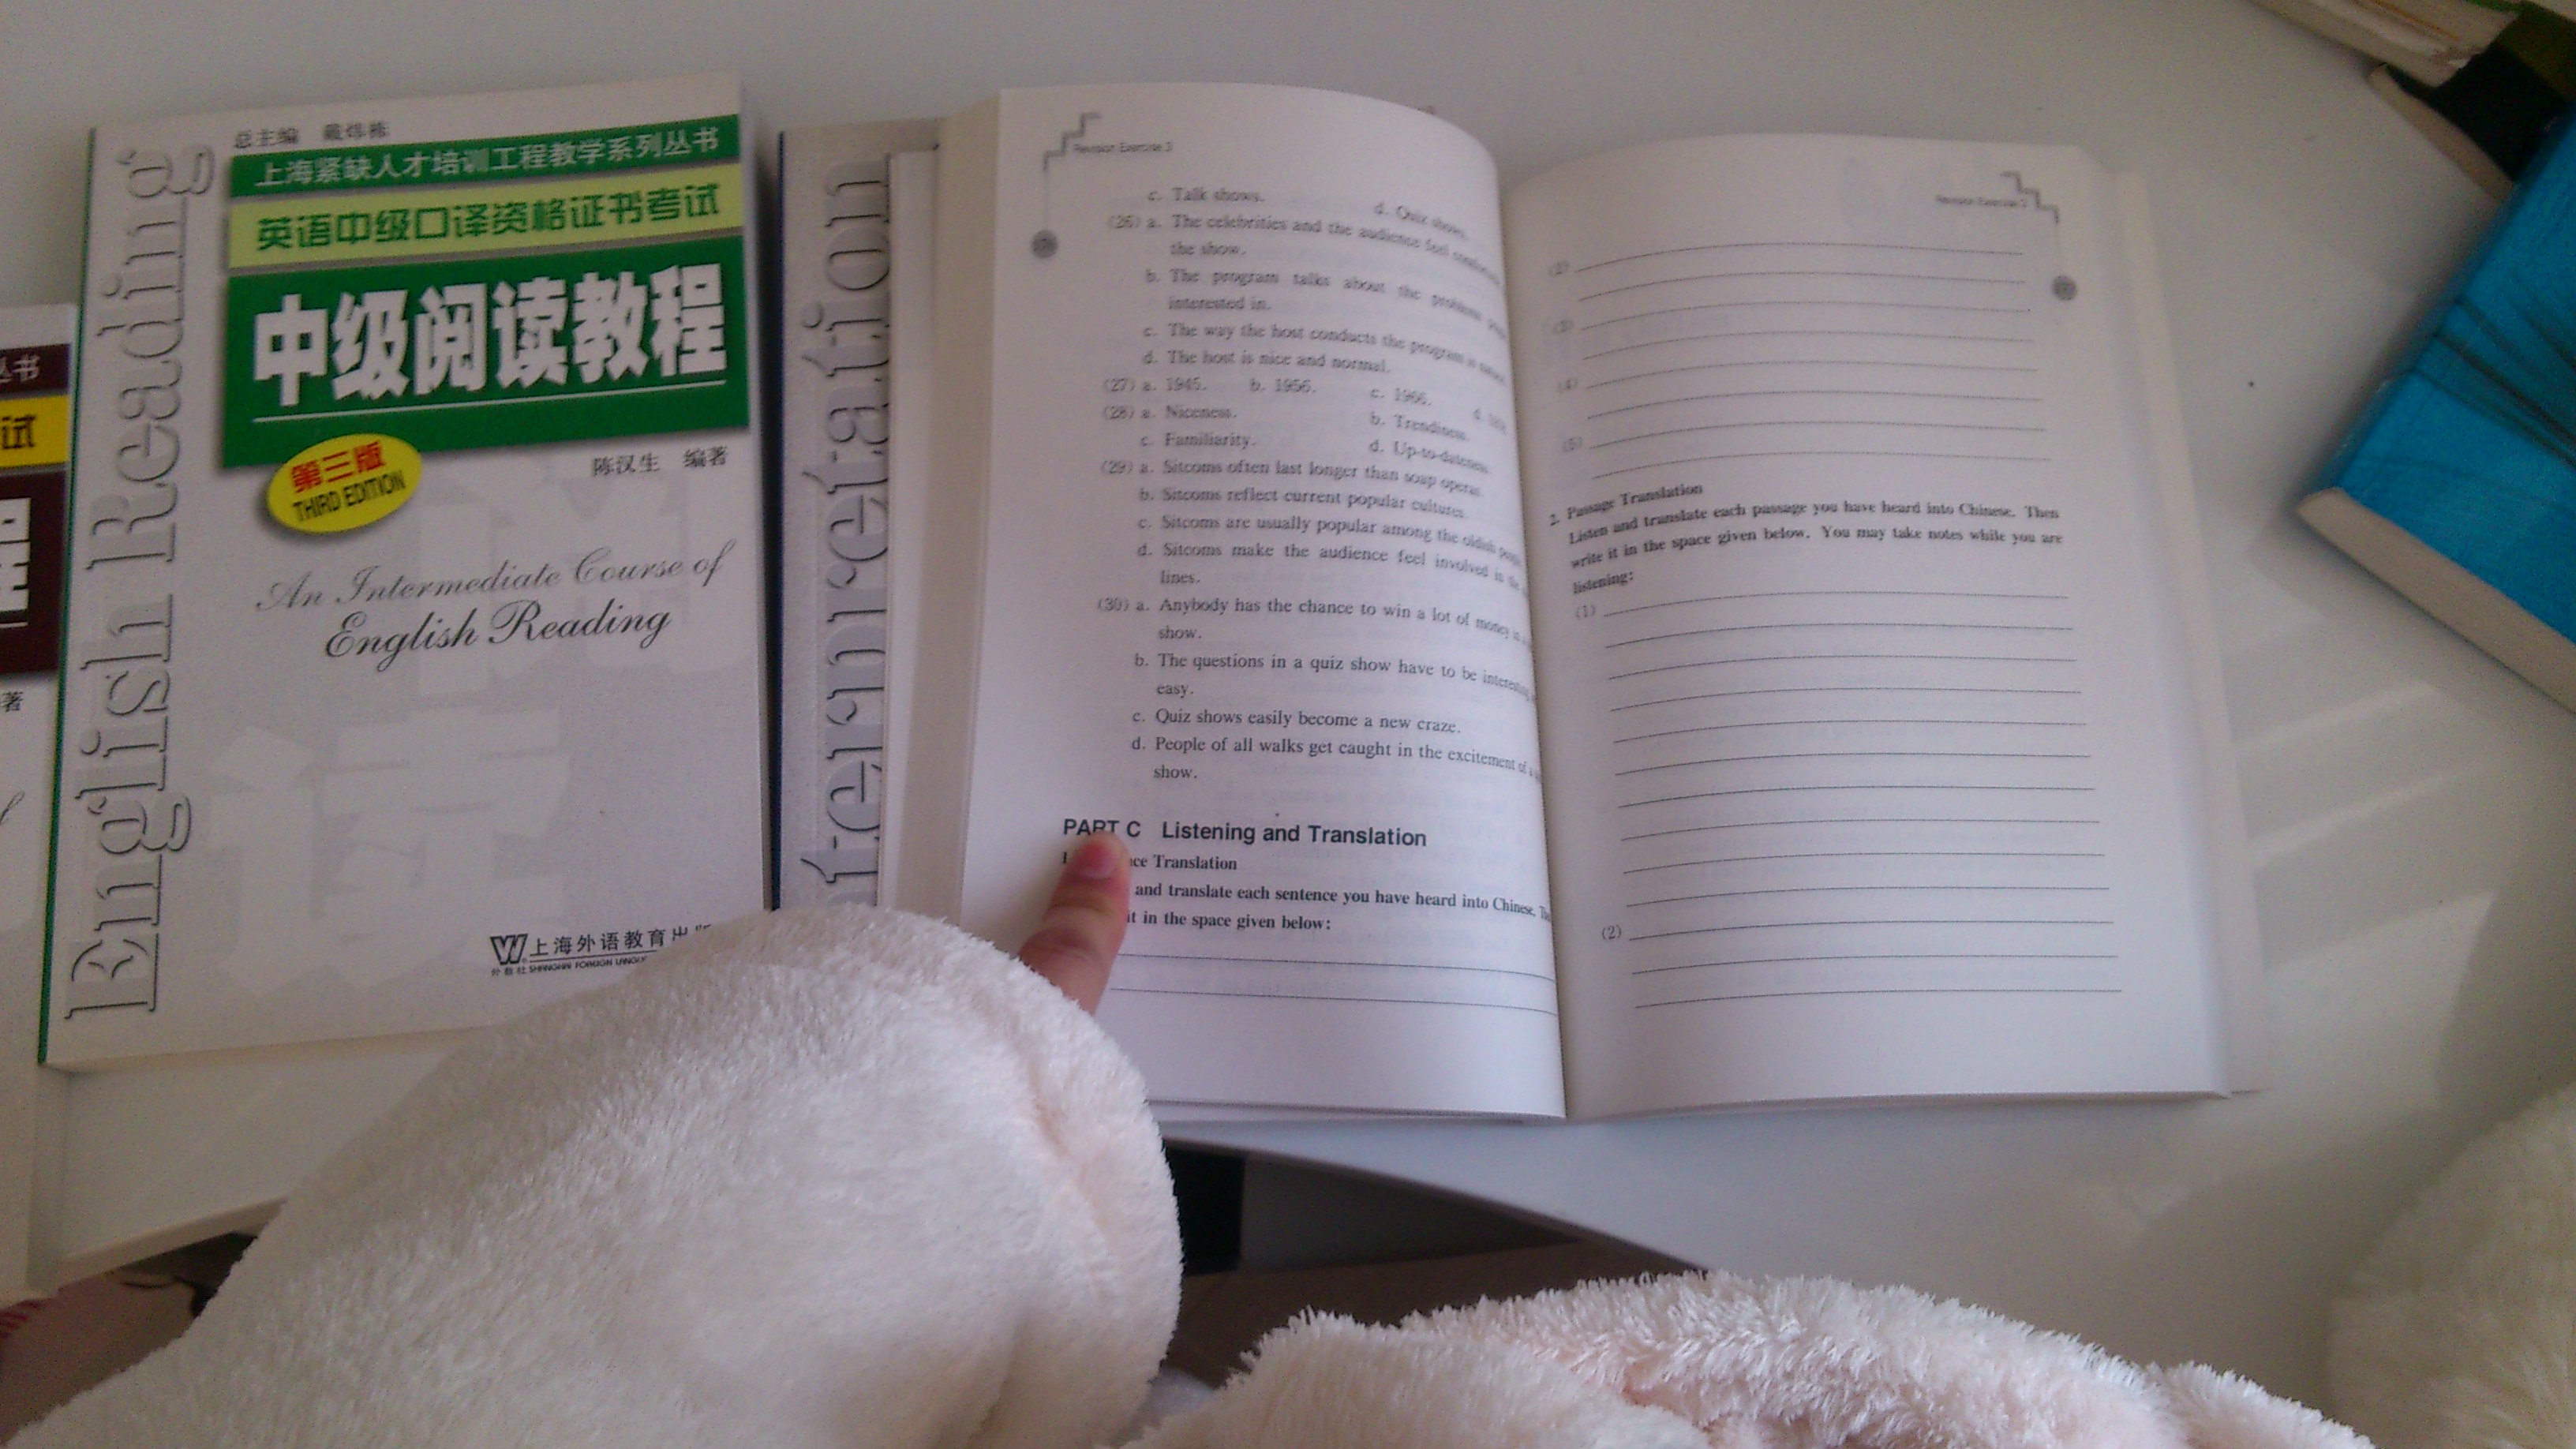 丛书
试
程
著
English Reading
总主编 戴炜栋
上海紧缺人才培训工程教学系列丛书
英语中级口译资格证书考试
中级阅读教程
第三版
THIRD EDITION
陈汉生 编著
An Intermediate Course of
English Reading
上海外语教育出版
外教社 SHANGHAI FOREIGN LANGU
Interpretation
Revision Exercise 3
c. Talk shows. d. Quiz shows.
(26) a. The celebrities and the audience feel
the show.
b. The program talks about the problems
interested in.
c. The way the host conducts the program is
d. The host is nice and normal.
(27) a. 1945. b. 1956. c. 1966. d.
(28) a. Niceness. b. Trendiness.
c. Familiarity. d. Up-to-dateness.
(29) a. Sitcoms often last longer than soap operas.
b. Sitcoms reflect current popular cultures.
c. Sitcoms are usually popular among the oldish
d. Sitcoms make the audience feel involved in the
lines.
(30) a. Anybody has the chance to win a lot of money in a
show.
b. The questions in a quiz show have to be interesting
easy.
c. Quiz shows easily become a new craze.
d. People of all walks get caught in the excitement of a
show.
PART C Listening and Translation
1 nce Translation
and translate each sentence you have heard into Chinese. The
it in the space given below:
Revision Exercise 3
(2)
(3)
(4)
(5)
2. Passage Translation
Listen and translate each passage you have heard into Chinese. Then
write it in the space given below. You may take notes while you are
listening:
(1)
(2)